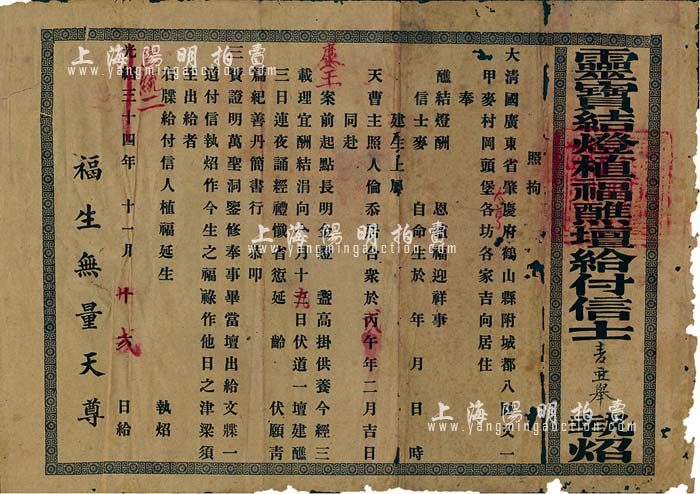 靈寶結燈植福醮壇給付信士 執炤
照拘
大清國廣東省肇慶府鶴山縣附城都八圖又一
甲麥村岡頭堡各坊各家吉向居住
奉
醮結燈酬 恩植福迎祥事
信士麥 自命生於 年 月 日 時
建生上屬
天曹主照人倫忝居眾於丙午年二月吉日
同赴
案前起點長明 盞高掛供養今經三
載理宜酬結涓向 月十 日伏道一壇建醮
三日連夜誦經禮懺省愆延 齡 伏願青
紀善丹簡書行 恭叩
三 證明萬聖洞鑒修奉事畢當壇出給文牒一
道付信執炤作今生之福祿作他日之津梁須
出給者
牒給付信人植福延生 執炤
光 三十四年 十一月 日給
福生無量天尊
上海陽明拍賣
www.yangmingauction.com
上海陽明拍賣
www.yangmingauction.com
上海陽明拍賣
www.yangmingauction.com
上海陽明拍賣
www.yangmingauction.com
上海陽明拍賣
www.yangmingauction.com